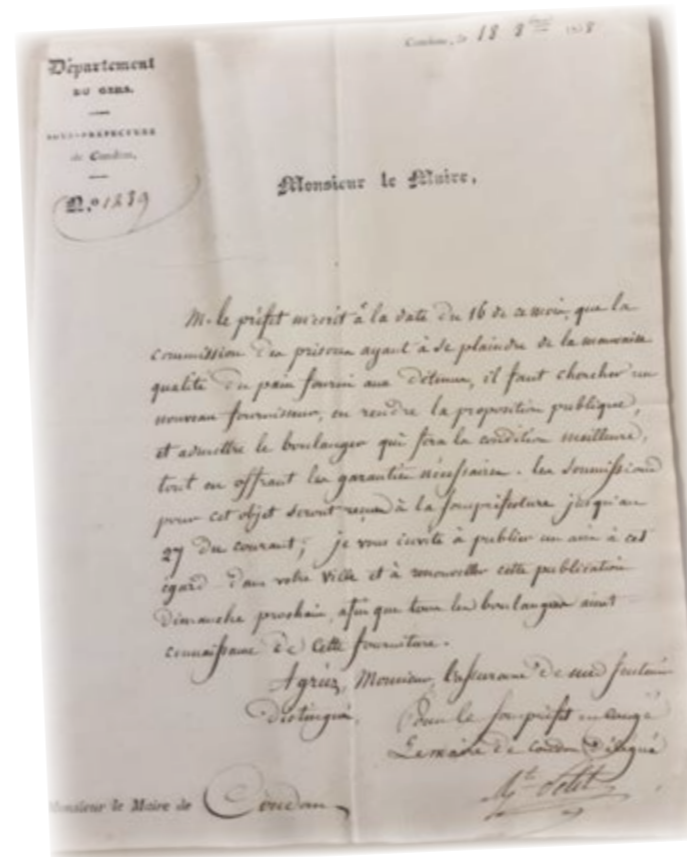 Département
DU GERS.
SOUS-PRÉFECTURE
de Condom,
N.º 1239
Condom, le 18 8bre
Monsieur le Maire,
M. le préfet m'écrit à la date du 16 de ce mois, que la
commission des prisons ayant à se plaindre de la mauvaise
qualité du pain fourni aux détenus, il faut chercher un
nouveau fournisseur, en rendre la proposition publique,
et admettre le boulanger qui fera la condition meilleure,
tout en offrant les garanties nécessaires. les soumissions
pour cet objet seront reçues à la souspréfecture jusqu'au
27 du courant; je vous invite à publier un avis à cet
égard dans votre ville et à renouveller cette publication
dimanche prochain, afin que tous les boulangers aient
connaissance de cette fourniture.
Agréez, Monsieur, l'assurance de mes sentimens
distingués.
Pour le souspréfet en congé
Le maire de Condom délégué
Monsieur le Maire de Condom